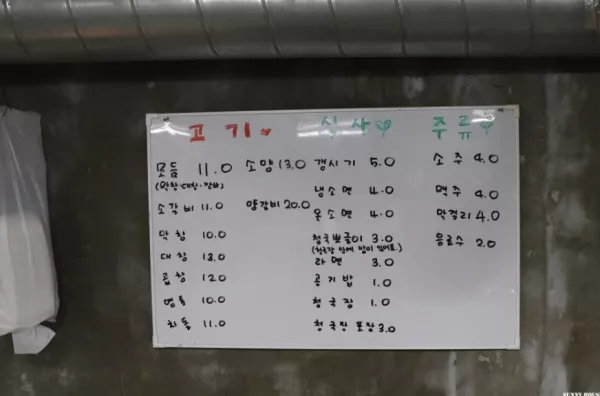 고기
모듬 11.0
(막창·대창·갈비)
소갈비 11.0
막창 10.0
대창 13.0
곱창 12.0
염통 10.0
차돌 11.0
소양 13.0
양갈비 20.0
식사
갱시기 5.0
냉소면 4.0
온소면 4.0
청국뽀글이 3.0
(청국장 안에 밥이 있어요.)
라면 3.0
공기밥 1.0
청국장 1.0
청국장 포장 3.0
주류
소주 4.0
맥주 4.0
막걸리 4.0
음료수 2.0